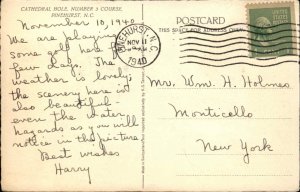 CATHEDRAL HOLE, NUMBER 3 COURSE,
PINEHURST, N.C.
November 10, 1940
We are playing
some golf here for a
few days. The
weather is lovely;
the scenery here is
also beautiful-
even the water
hazards as you will
notice in the picture.
Best wishes
Harry
POSTCARD
THIS SPACE FOR ADDRESS ONLY
PINEHURST, N.C.
NOV 11
1940
Mrs. Wm. H. Holmes
Monticello
New York